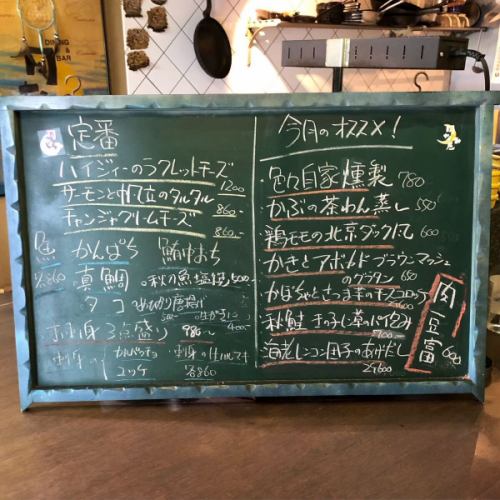 DINING
&
BAR
定番
ハイジィーのラクレットチーズ
1200
サーモンと帆立のタルタル
860-
チャンジャクリームチーズ
860-
魚 かんぱち 鮪中おち
各860 真鯛 秋の魚塩焼
タコ 唐揚げ
お刺身3点盛り 980-
刺身の カルパッチョ
ユッケ 各860
今月のオススメ!
・色々自家燻製 780
・かぶの茶わん蒸し 550
・鶏モモの北京ダック風 600
・かきとアボカド ブラウンマッシュ
のグラタン 650
・かぼちゃとさつま芋のチーズコロッケ
・秋鮭 キノコ パイ包み
・海老レンコン団子のあげだし
2ケ600
肉豆富